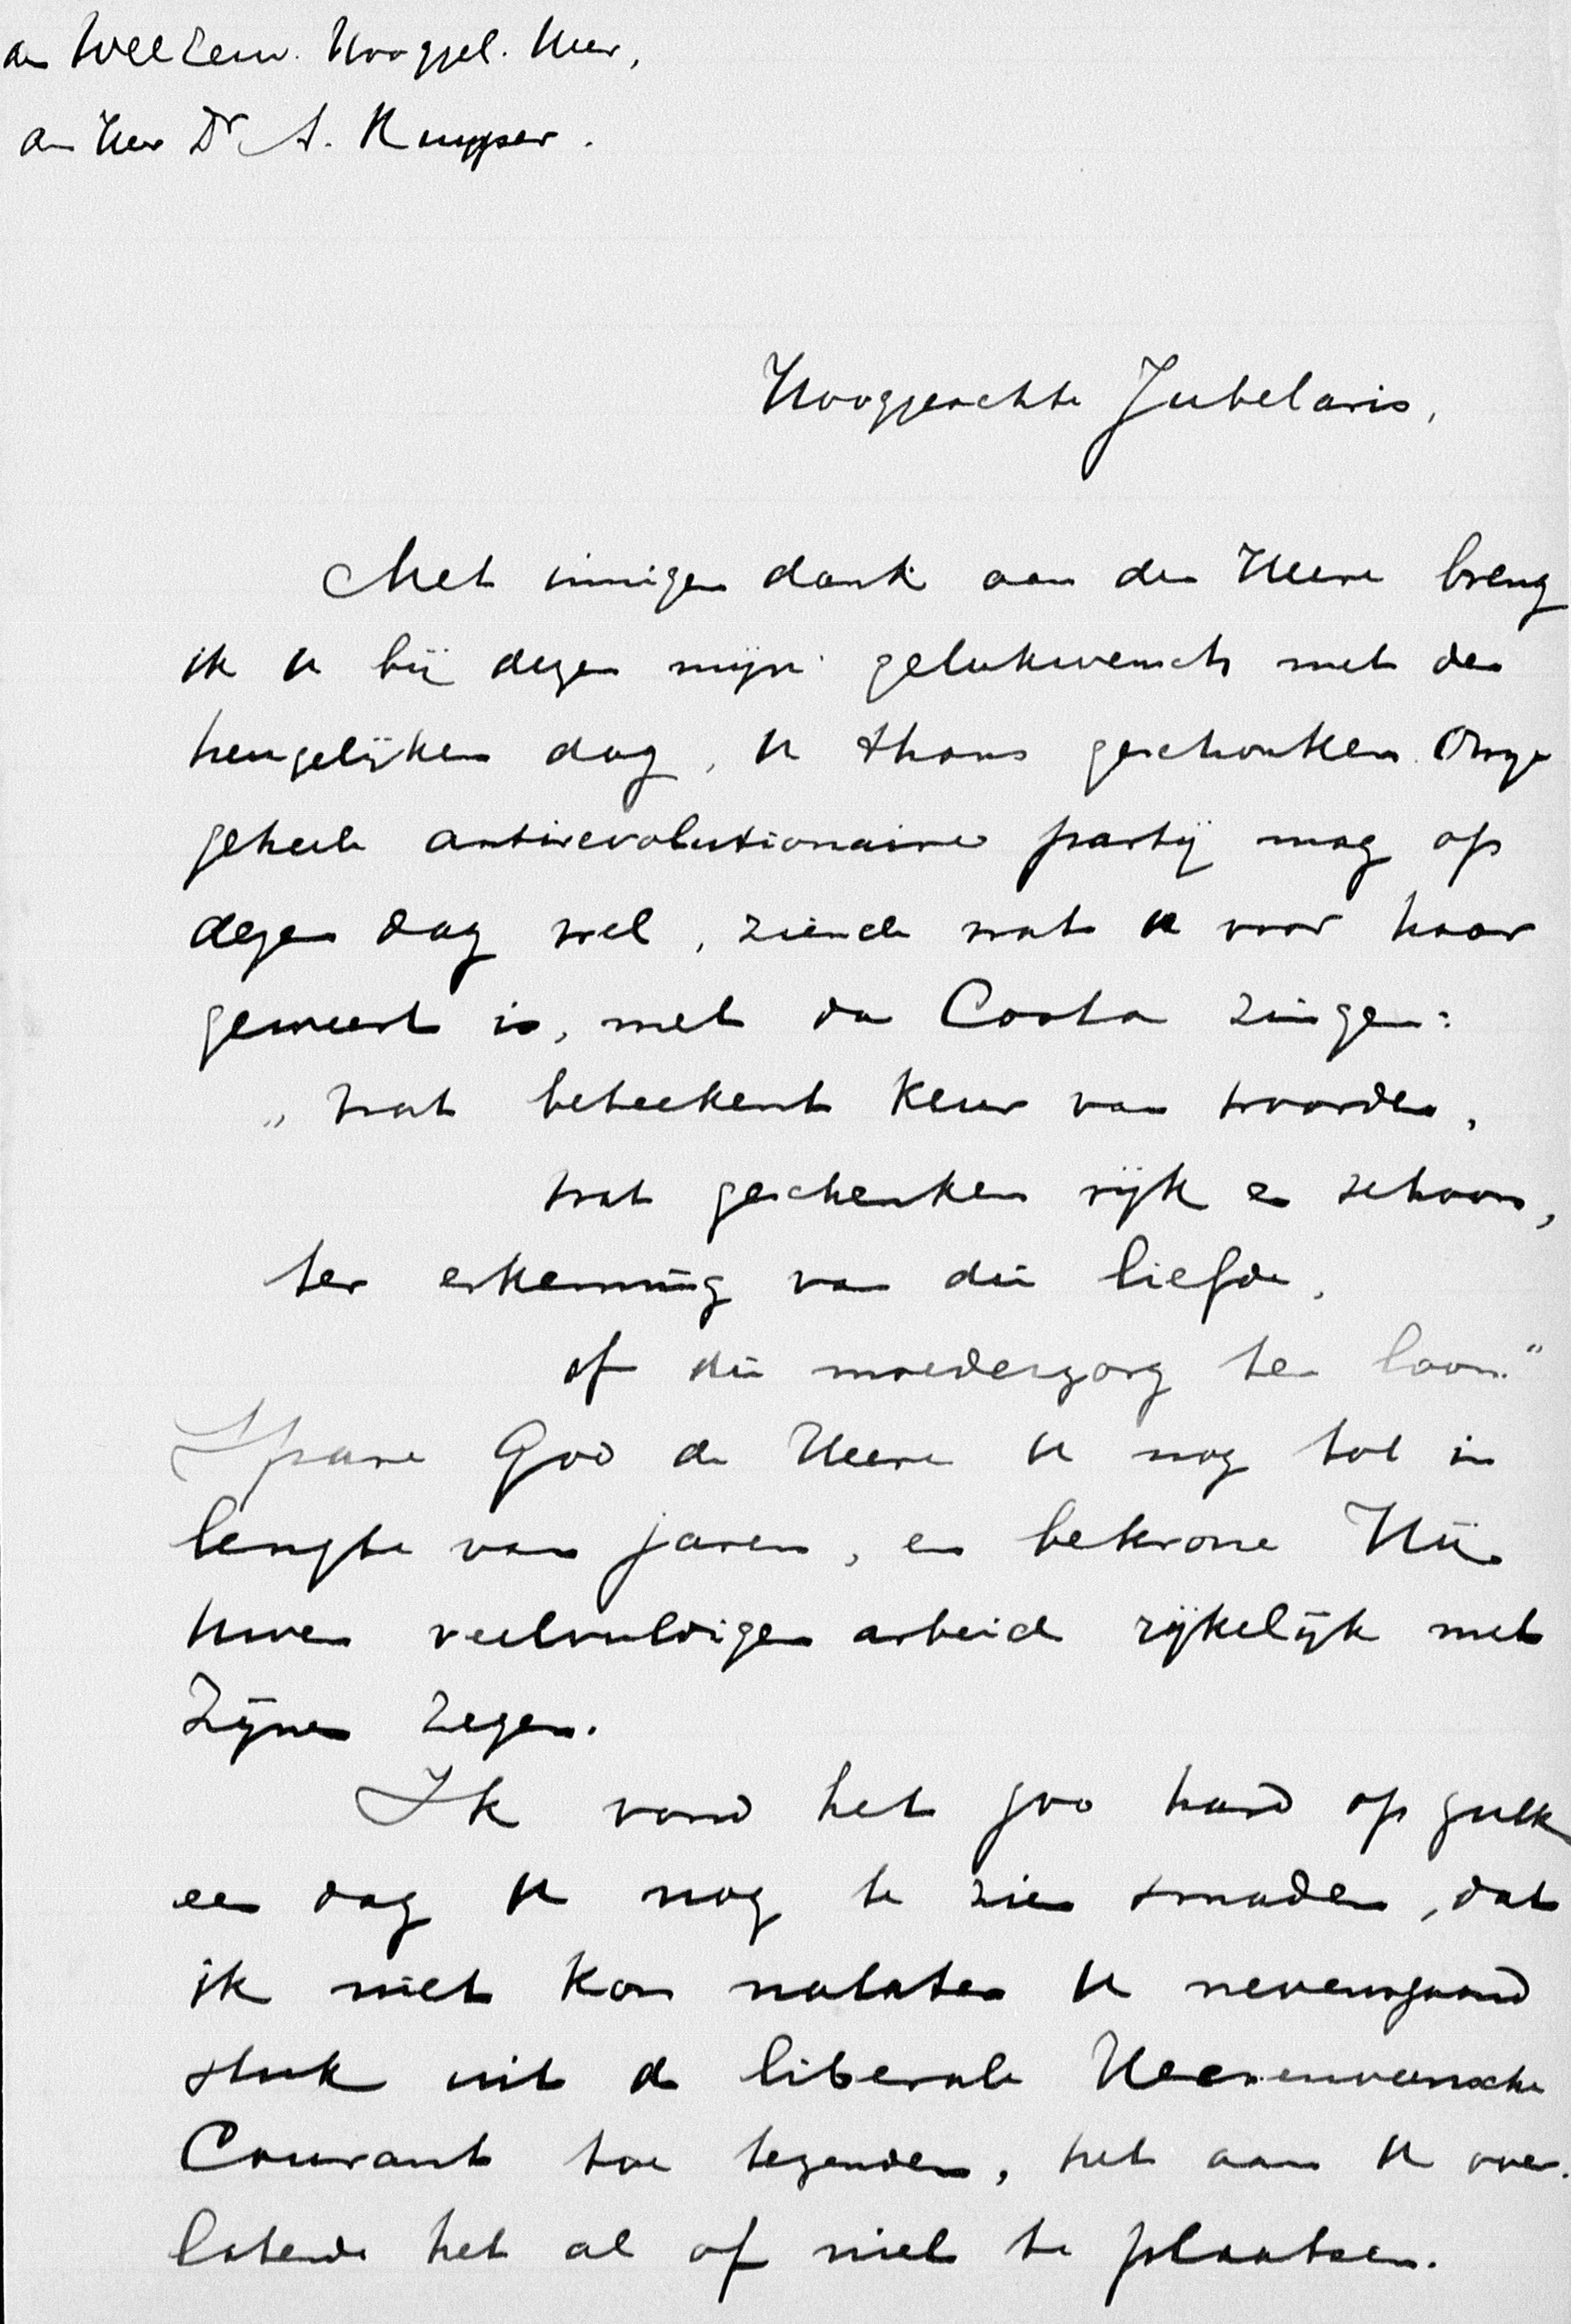 den WelEerw. Hooggel. Heer,
den Heer Dr A. Kuyper.
Hooggeachte Jubelaris,
Met innigen dank aan den Heere breng
ik U bij dezen mijn gelukwensch met den
heugelijken dag, U thans geschonken. Onze
geheele antirevolutionaire partij mag op
dezen dag wel, ziende wat U voor haar
geweest is, met da Costa zingen:
„wat beteekent keur van woorden,
wat geschenken rijk en schoon,
ter erkenning van die liefde,
of die moederzorg ten loon."
Spare God de Heere U nog tot in
lengte van jaren, en bekrone Hij
Uwen veelvuldigen arbeid rijkelijk met
Zijnen zegen.
Ik vond het zoo hard op zulk
een dag U nog te zien smaden, dat
ik niet kon nalaten U nevensgaand
stuk uit de liberale Heerenveensche
Courant toe te zenden, het aan U over-
latende het al of niet te plaatsen.